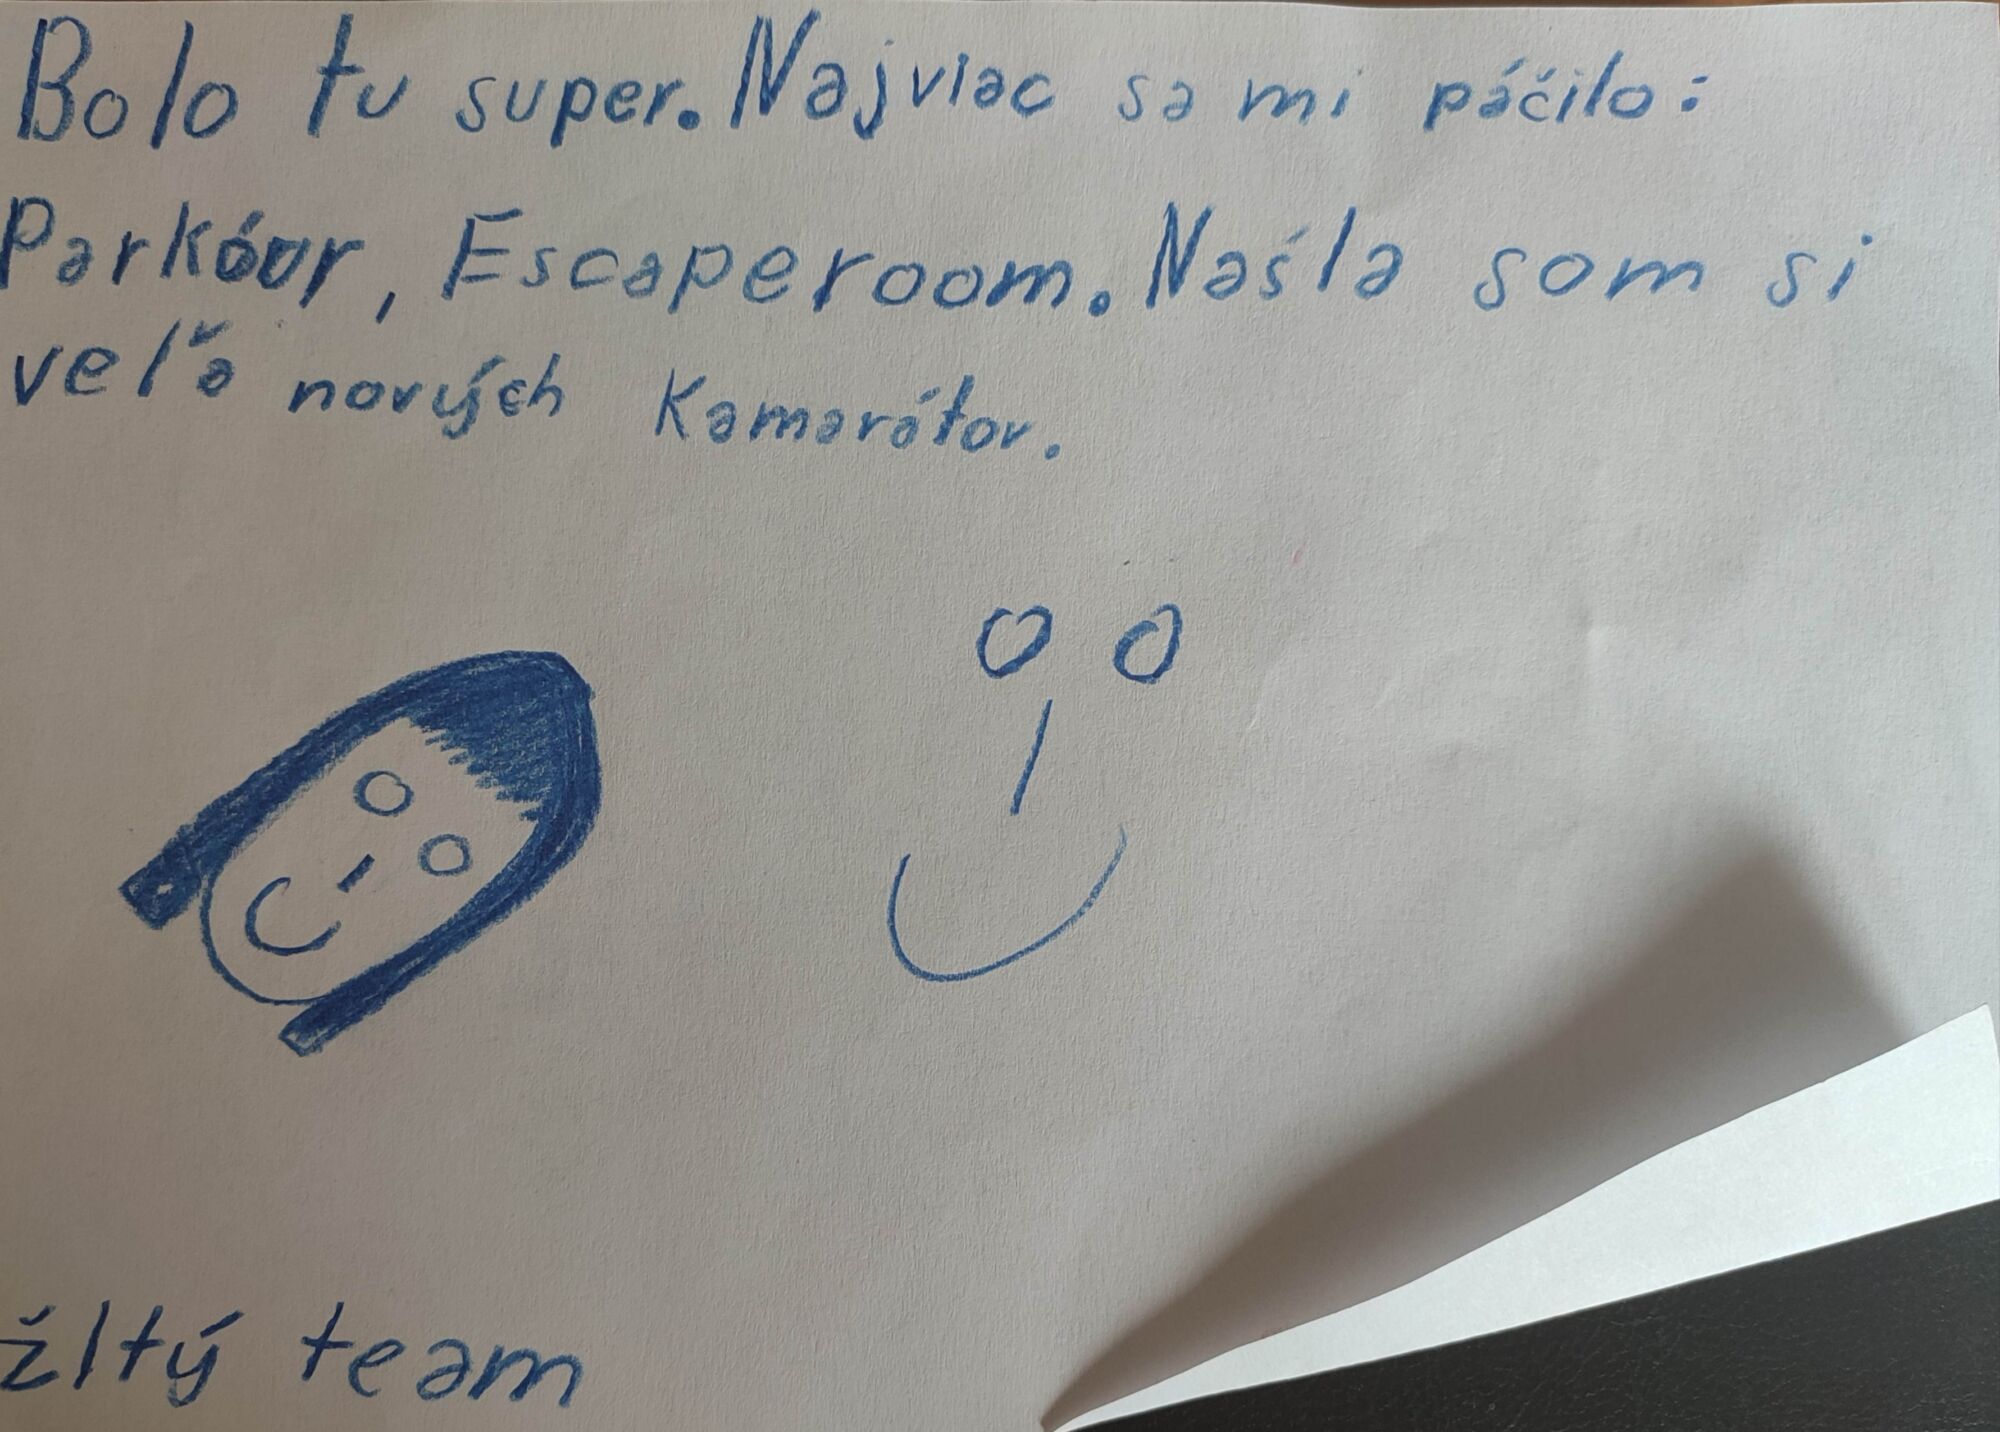 Bolo tu super. Najviac sa mi páčilo:
Parkóur, Escaperoom. Našla som si
veľa nových kamarátov.
žltý team